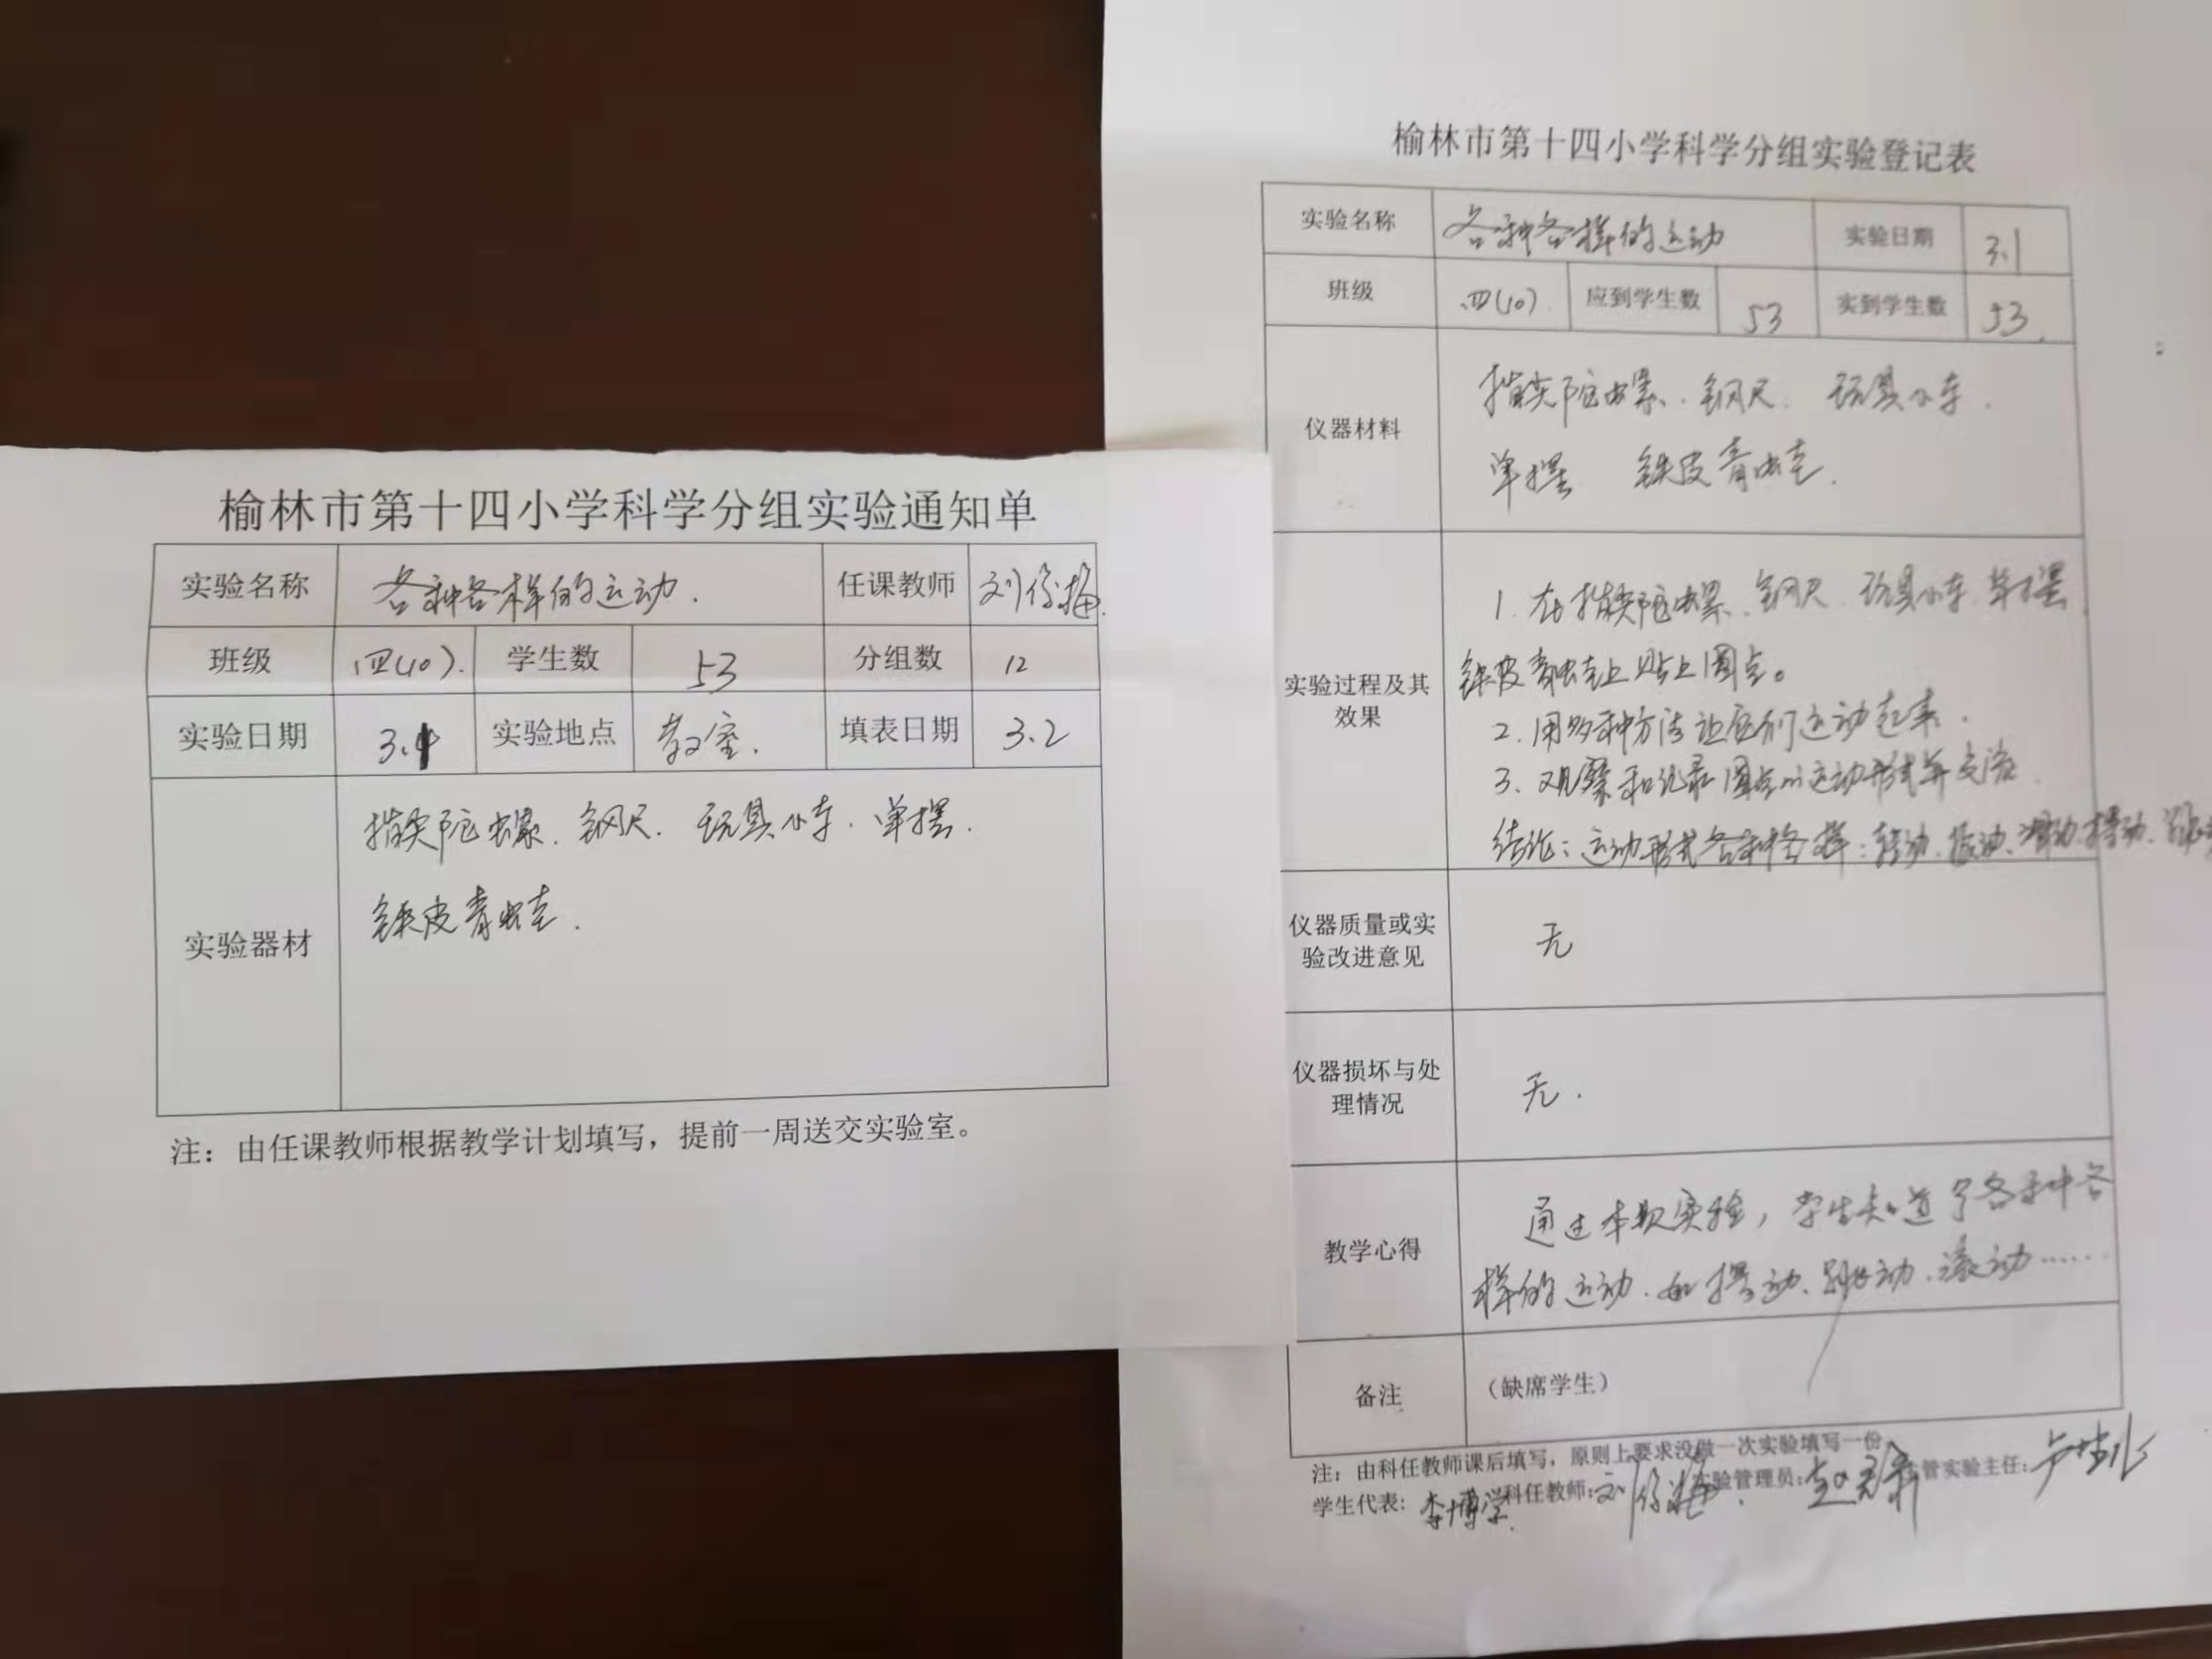 榆林市第十四小学科学分组实验通知单
实验名称 各种各样的运动. 任课教师 刘
班级 四(10). 学生数 53 分组数 12
实验日期 3.1 实验地点 教室. 填表日期 3.2
实验器材
指尖陀螺、钢尺. 玩具小车. 单摆.
铁皮青蛙.
注：由任课教师根据教学计划填写，提前一周送交实验室。
榆林市第十四小学科学分组实验登记表
实验名称 各种各样的运动 实验日期 3.1
班级 四(10). 应到学生数 53 实到学生数 53.
仪器材料
指尖陀螺、钢尺. 玩具小车.
单摆 铁皮青蛙.
实验过程及其
效果
1. 在指尖陀螺、钢尺. 玩具小车. 单摆.
铁皮青蛙上贴上圆点。
2. 用多种方法让它们运动起来.
3. 观察和记录圆点的运动形式并交流.
结论：运动形式各种各样：转动、振动、滑动、摆动、
仪器质量或实
验改进意见
无
仪器损坏与处
理情况
无.
教学心得
通过本次实验，学生知道了各种各
样的运动. 如摆动、跳动、滚动……
备注 （缺席学生）
注：由科任教师课后填写，原则上要求没做一次实验填写一份
学生代表: 李博学 科任教师: 刘 实验管理员: 主管实验主任: